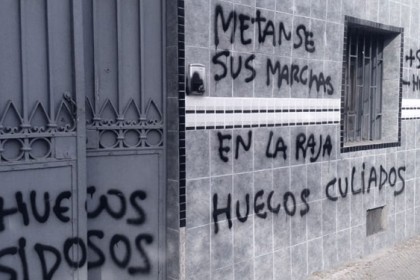 METANSE
SUS MARCHAS
EN LA RAJA
HUECOS CULIADOS
HUECOS
SIDOSOS